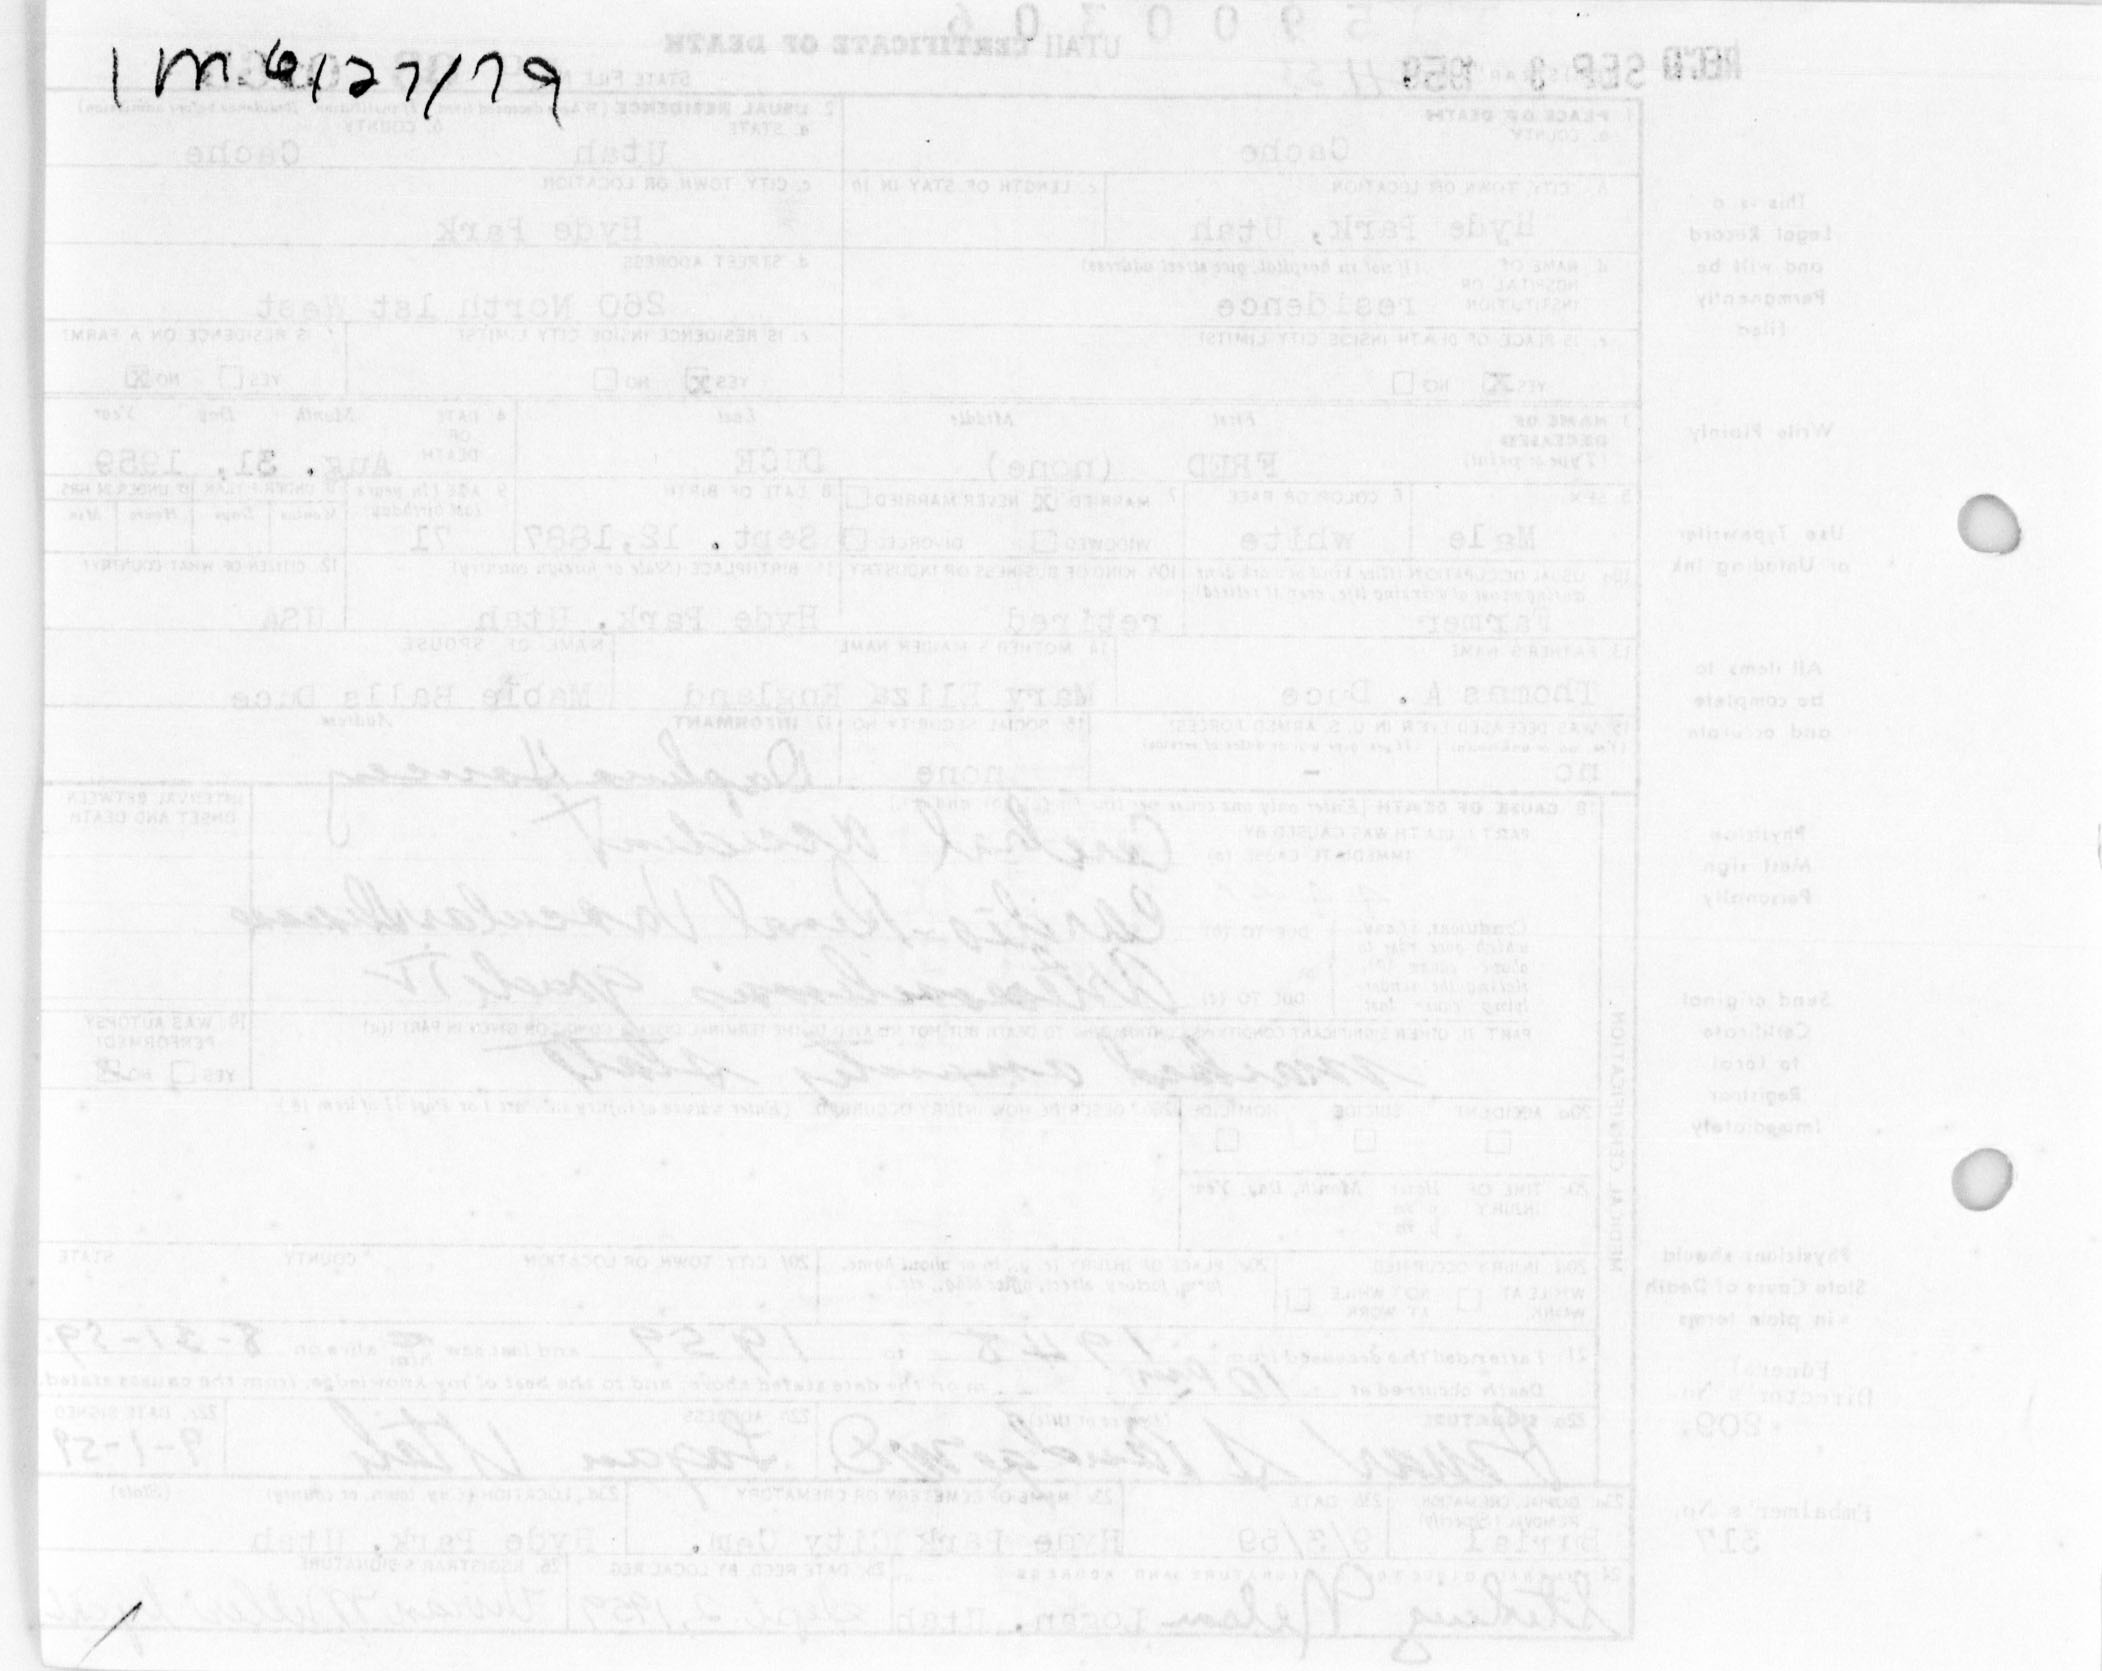 1 m 6/27/79
REC'D SEP 3 1959
5900306
UTAH CERTIFICATE OF DEATH
STATE FILE
1 PLACE OF DEATH
a. COUNTY
Cache
2 USUAL RESIDENCE (Where deceased lived. If institution: Residence before admission)
a. STATE
Utah
b. COUNTY
Cache
b. CITY, TOWN OR LOCATION
Hyde Park, Utah
c. LENGTH OF STAY IN 1b
c. CITY, TOWN OR LOCATION
Hyde Park
d. NAME OF HOSPITAL OR INSTITUTION
(If not in hospital, give street address)
residence
d. STREET ADDRESS
260 North 1st West
e. IS PLACE OF DEATH INSIDE CITY LIMITS?
YES X NO
e. IS RESIDENCE INSIDE CITY LIMITS?
YES X NO
f. IS RESIDENCE ON A FARM?
YES NO X
3 NAME OF DECEASED (Type or print)
First Middle Last
FRED (none) DUCE
4 DATE OF DEATH
Month Day Year
Aug. 31, 1959
5 SEX
Male
6 COLOR OR RACE
white
7 MARRIED X NEVER MARRIED
WIDOWED DIVORCED
8 DATE OF BIRTH
Sept. 12, 1887
9 AGE (In years last birthday)
71
IF UNDER 1 YEAR IF UNDER 24 HRS
Months Days Hours Min
10a USUAL OCCUPATION (Give kind of work done during most of working life, even if retired)
Farmer
10b KIND OF BUSINESS OR INDUSTRY
retired
11 BIRTHPLACE (State or foreign country)
Hyde Park, Utah
12. CITIZEN OF WHAT COUNTRY?
USA
13 FATHER'S NAME
Thomas A. Duce
14 MOTHER'S MAIDEN NAME
Mary Eliza England
NAME OF SPOUSE
Mable Balls Duce
15 WAS DECEASED EVER IN U.S. ARMED FORCES?
(Yes, no, or unknown) (If yes, give war or dates of service)
no -
16 SOCIAL SECURITY NO
none
17 INFORMANT Address
Daphene Hancey
18 CAUSE OF DEATH (Enter only one cause per line for (a), (b), and (c))
PART I DEATH WAS CAUSED BY
IMMEDIATE CAUSE (a)
Cerebral Accident
INTERVAL BETWEEN ONSET AND DEATH
Conditions, if any, which gave rise to above cause (a), stating the underlying cause last
DUE TO (b)
Cardio-Renal Vascular Disease
DUE TO (c)
Arteriosclerosis grade IV
PART II. OTHER SIGNIFICANT CONDITIONS CONTRIBUTING TO DEATH BUT NOT RELATED TO THE TERMINAL DISEASE CONDITION GIVEN IN PART I(a)
marked anxiety state
19 WAS AUTOPSY PERFORMED?
YES NO X
MEDICAL CERTIFICATION
20a ACCIDENT SUICIDE HOMICIDE
20b DESCRIBE HOW INJURY OCCURRED (Enter nature of injury in Part I or Part II of item 18)
20c TIME OF INJURY
Hour Month, Day, Year
a m
p m
20d INJURY OCCURRED
WHILE AT WORK NOT WHILE AT WORK
20e PLACE OF INJURY (e g., in or about home, farm, factory, street, office bldg., etc.)
20f CITY, TOWN, OR LOCATION COUNTY STATE
21 I attended the deceased from 1948 to 1959 and last saw him alive on 8-31-59
Death occurred at 10 pm m on the date stated above and to the best of my knowledge, from the causes stated.
22a SIGNATURE (Degree or title)
22b ADDRESS
Logan Utah
22c. DATE SIGNED
9-1-59
23a BURIAL, CREMATION, REMOVAL (Specify)
Burial
23b DATE
9/3/59
23c NAME OF CEMETERY OR CREMATORY
Hyde Park City Cem.
23d. LOCATION (City, town, or county) (State)
Hyde Park, Utah
24 FUNERAL DIRECTOR'S SIGNATURE AND ADDRESS
Nelson Logan, Utah
25. DATE RECD. BY LOCAL REG.
Sept 2, 1959
26. REGISTRAR'S SIGNATURE
This is a
Legal Record
and will be
Permanently
Filed
Write Plainly
Use Typewriter
or Unfading Ink
All items to
be complete
and accurate
Physician
Must sign
Personally
Send original
Certificate
to local
Registrar
Immediately
Physicians should
State Cause of Death
in plain terms
Funeral
Director's No.
209.
Embalmer's No.
317